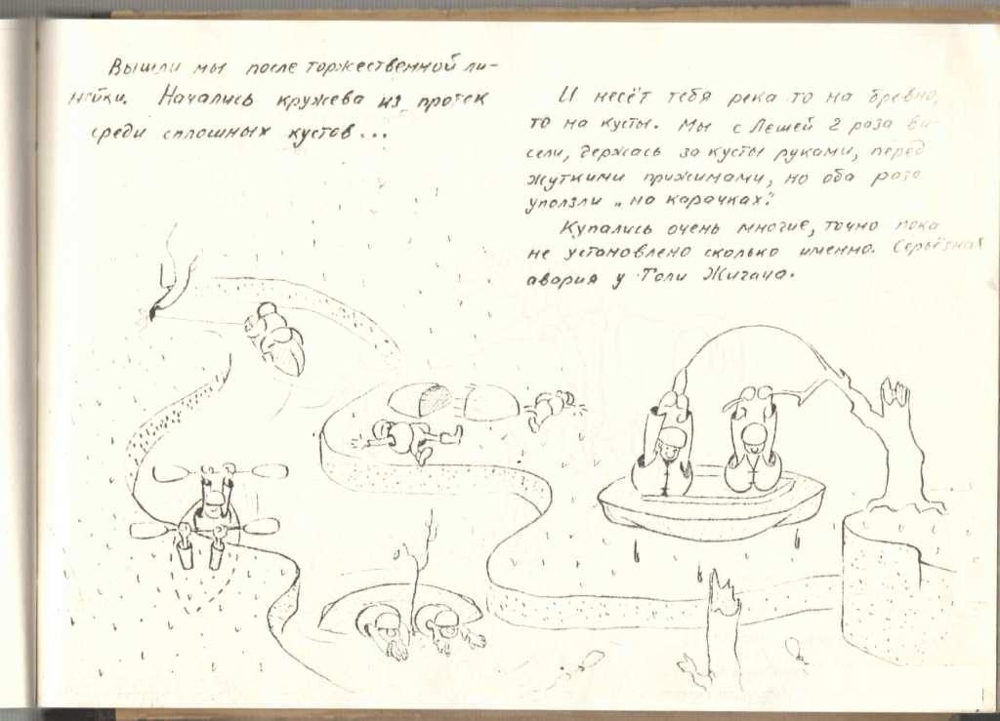 Вышли мы после торжественной ли-
нейки. Начались кружева из проток
среди сплошных кустов...
И несёт тебя река то на бревно,
то на кусты. Мы с Лешей 2 раза ви-
сели, держась за кусты руками, перед
жуткими прижимами, но оба раза
уползли „на карачках".
Купались очень многие, точно пока
не установлено сколько именно. Серьёзная
авария у Толи Жигача.